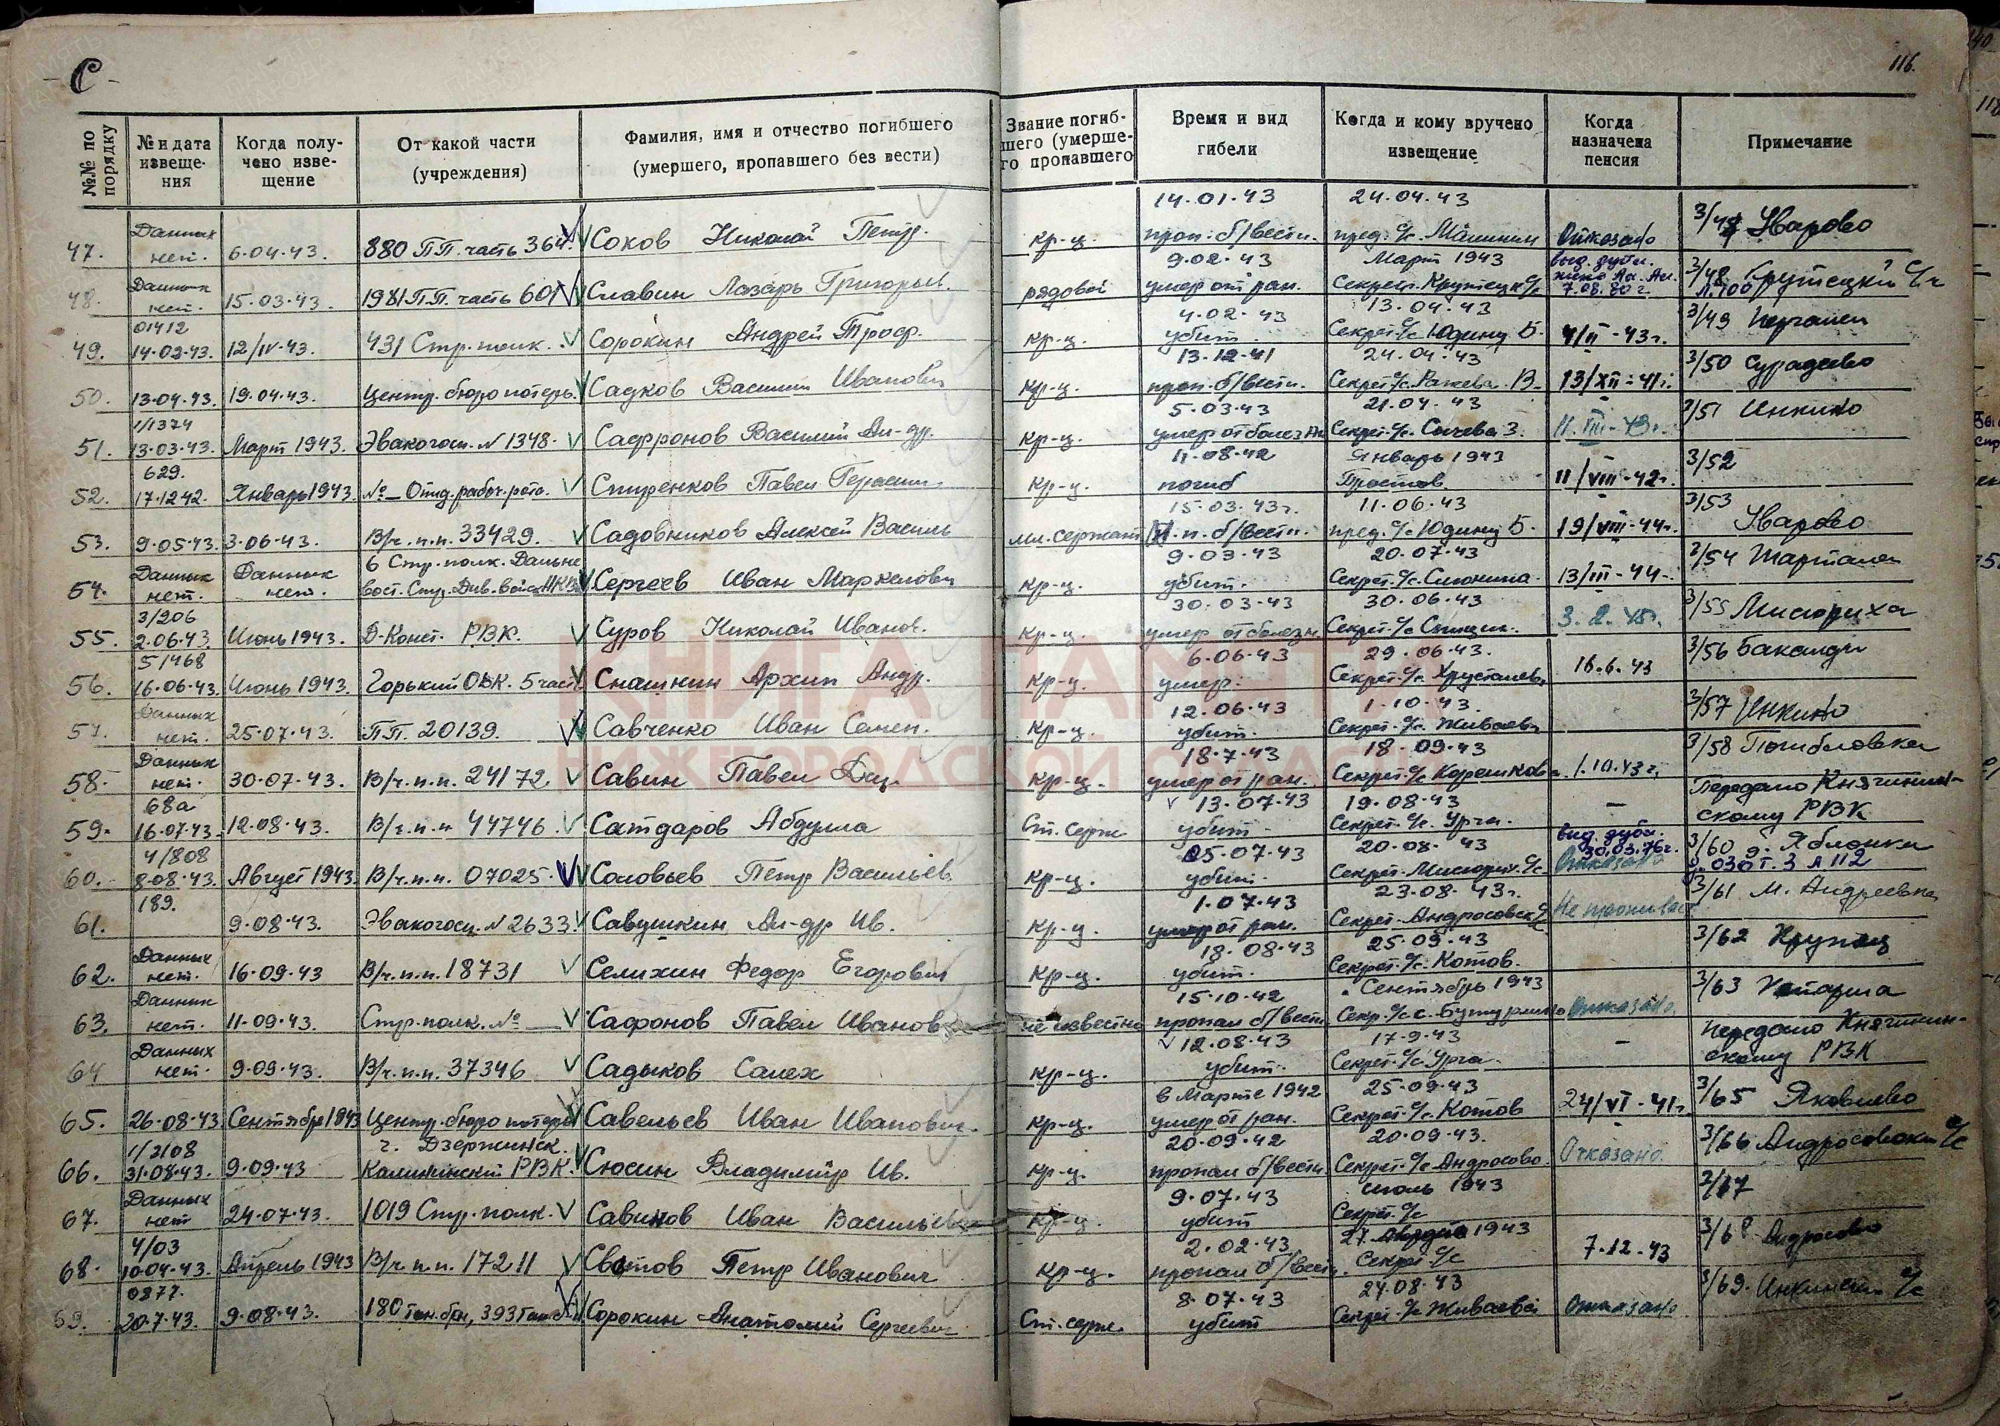 С
116.
№№ по порядку
№ и дата извеще-ния
Когда полу-чено изве-щение
От какой части (учреждения)
Фамилия, имя и отчество погибшего (умершего, пропавшего без вести)
Звание погиб-шего (умерше-го пропавшего
Время и вид гибели
Когда и кому вручено извещение
Когда назначена пенсия
Примечание
14.01.43 24.04.43
47. Данных нет. 6.04.43. 880 П.П. часть 364 Соков Николай Петр. кр-ц. проп. б/вести. пред. с/с. Отказано 3/47 Уварово
9.02.43 Март 1943 выд. дубл.
48. Данных нет. 15.03.43. 1981 П.П. часть 601 Славин Лазарь Григорьев. рядовой умер от ран. Секрет. Крутецк. с/с 7.08.80 г. 3/48 Крутецкий с/с
01412 4.02.43 13.04.43
49. 14.02.43. 12/IV.43. 431 Стр. полк. Сорокин Андрей Троф. кр-ц. убит. Секрет. с/с Юдину Б. 4/II-43г. 3/49
13.12.41 24.04.43
50. 13.04.43. 19.04.43. Центр. бюро потерь. Садков Василий Иванович кр-ц. проп. б/вести. Секрет. с/с. Ражева В. 13/XII-41г. 3/50 Сурадеево
1/1374 5.03.43 21.04.43
51. 13.03.43. Март 1943. Эвакогосп. №1348. Сафронов Василий Ал-др. кр-ц. умер от болезни Секрет. с/с. Сычева З. 11.III-43г. 3/51 Инкино
629. 11.08.42 Январь 1943
52. 17.12.42. Январь 1943. № Отд. рабоч. рота. Спиренков Павел Герасим. кр-ц. погиб 11/VIII-42г. 3/52
15.03.43г. 11.06.43
53. 9.05.43. 3.06.43. В/ч. п.п. 33429. Садовников Алексей Василь мл. сержант п. б/вести. пред. с/с. Юдину Б. 19/VIII-44г. 3/53 Уварово
6 Стр. полк. Дальне 9.03.43 20.07.43
54. Данных нет. Данных нет. вост. Стр. Див. войск НКВД Сергеев Иван Маркелович кр-ц. убит. Секрет. с/с. 13/III-44. 3/54
3/206 30.03.43 30.06.43
55. 2.06.43. Июнь 1943. Д-Конст. РВК. Суров Николай Иванов. кр-ц. умер от болезн. Секрет. с/с 3/55 Мисюриха
5/1468 6.06.43 29.06.43.
56. 16.06.43. Июнь 1943. Горький ОВК. 5 часть Снашнин Архип Андр. кр-ц. умер. Секрет. с/с. 16.6.43 3/56 Бакалды
12.06.43 1.10.43.
57. Данных нет. 25.07.43. П.П. 20139. Савченко Иван Семен. кр-ц. убит. Секрет. с/с. Живаева 3/57 Инкино
18.7.43 18.09.43
58. Данных нет. 30.07.43. В/ч. п.п. 24172. Савин Павел Дм. кр-ц. умер от ран. Секрет. с/с Корешкова 1.10.43г. 3/58 Погибловка
68а 13.07.43 19.08.43
59. 16.07.43. 12.08.43. В/ч. п.п. 44746. Сатдаров Абдулла Ст. серж. убит. Секрет. с/с. Урга. — Передано Княгининскому РВК
4/808 05.07.43 20.08.43 выд. дубл. 30.03.76г.
60. 8.08.43. Август 1943. В/ч. п.п. 07025. Соловьев Петр Васильев. кр-ц. убит. Секрет. Мисюрих. с/с. Отказано 3/60 д. Яблонка 030 т. 3 л 112
189. 1.07.43 23.08.43г.
61. 9.08.43. Эвакогосп. №2633. Савушкин Ал-др Ив. кр-ц. умер от ран. Секрет. Андросовск. с/с Не проживает 3/61 М. Андреевка
18.08.43 25.09.43
62. Данных нет. 16.09.43 В/ч. п.п. 18731 Селихин Федор Егорович кр-ц. убит. Секрет. с/с. Котов. 3/62 Крутец
15.10.42 Сентябрь 1943
63. Данных нет. 11.09.43. Стр. полк. № Сафонов Павел Иванов. не известно пропал б/вести Секр. с/с с. Бутурлино Отказано 3/63
12.08.43 17.9.43
64 Данных нет. 9.09.43. В/ч. п.п. 37346 Садыков Салех кр-ц. убит. Секрет. с/с. Урга. — Передано Княгининскому РВК
в Марте 1942 25.09.43
65. 26.08.43 Сентябрь 1943 Центр. бюро потерь Савельев Иван Иванович. кр-ц. умер от ран. Секрет. с/с. Котов 24/VI-41г. 3/65 Яковлево
1/2108 г. Дзержинск. 20.09.42 20.09.43.
66. 31.08.43. 9.09.43 Калининский РВК. Сюсин Владимир Ив. кр-ц. пропал б/вести Секрет. с/с Андросово. Отказано. 3/66 Андросовский с/с
9.07.43 июль 1943
67. Данных нет 24.07.43. 1019 Стр. полк. Савинов Иван Васильев. кр-ц. убит Секрет. с/с
4/03 2.02.43 27. 1943
68. 10.04.43. Апрель 1943 В/ч п.п. 17211 Петр Иванович кр-ц. пропал б/вест. Секрет. с/с 7.12.43 3/68 Андросово
0877. 8.07.43 24.08.43
69. 20.7.43. 9.08.43. 180 тан. бр, 393 Сорокин Анатолий Сергеевич Ст. серж. убит Секрет. с/с Живаевой Отказано 3/69. Инкинский с/с
КНИГА ПАМЯТИ
НИЖЕГОРОДСКОЙ ОБЛАСТИ